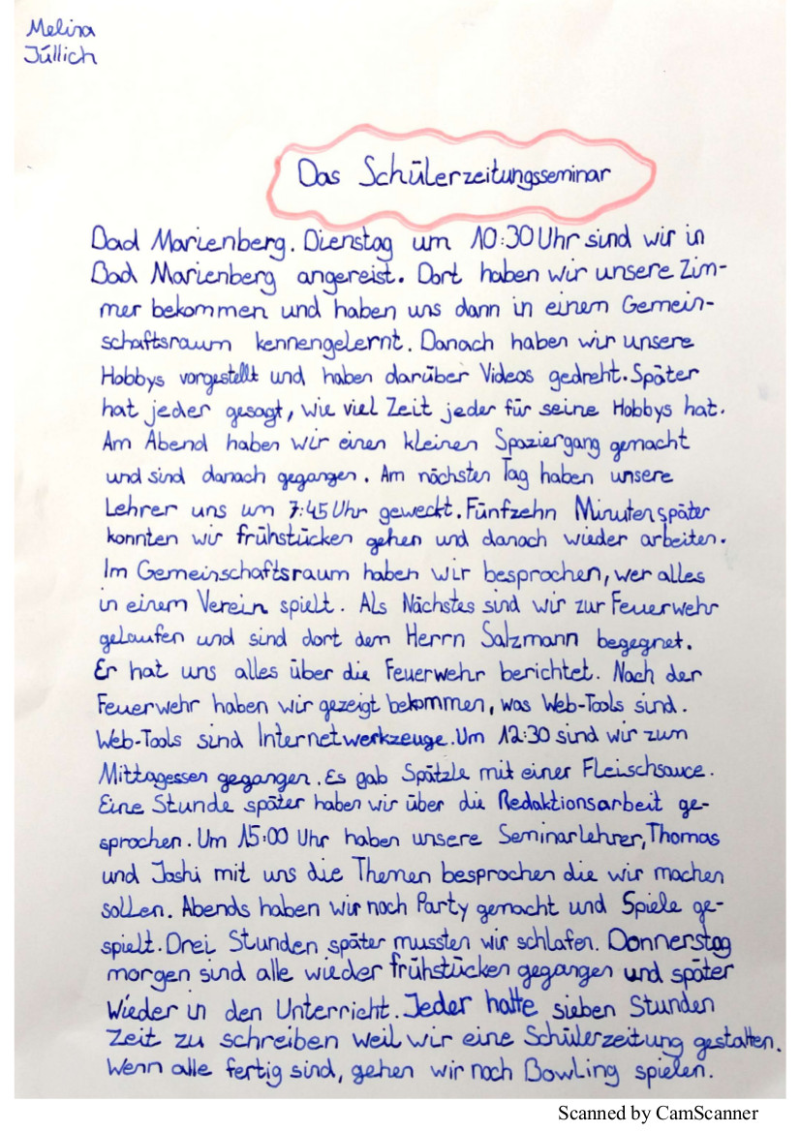 Melina
Jüllich
Das Schülerzeitungsseminar
Bad Marienberg. Dienstag um 10:30 Uhr sind wir in
Bad Marienberg angereist. Dort haben wir unsere Zim-
mer bekommen und haben uns dann in einem Gemein-
schaftsraum kennengelernt. Danach haben wir unsere
Hobbys vorgestellt und haben darüber Videos gedreht. Später
hat jeder gesagt, wie viel Zeit jeder für seine Hobbys hat.
Am Abend haben wir einen kleinen Spaziergang gemacht
und sind danach gegangen. Am nächsten Tag haben unsere
Lehrer uns um 7:45 Uhr geweckt. Fünfzehn Minuten später
konnten wir frühstücken gehen und danach wieder arbeiten.
Im Gemeinschaftsraum haben wir besprochen, wer alles
in einem Verein spielt. Als Nächstes sind wir zur Feuerwehr
gelaufen und sind dort dem Herrn Salzmann begegnet.
Er hat uns alles über die Feuerwehr berichtet. Nach der
Feuerwehr haben wir gezeigt bekommen, was Web-Tools sind.
Web-Tools sind Internetwerkzeuge. Um 12:30 sind wir zum
Mittagessen gegangen. Es gab Spätzle mit einer Fleischsauce.
Eine Stunde später haben wir über die Redaktionsarbeit ge-
sprochen. Um 15:00 Uhr haben unsere Seminarlehrer, Thomas
und Joshi mit uns die Themen besprochen die wir machen
sollen. Abends haben wir noch Party gemacht und Spiele ge-
spielt. Drei Stunden später mussten wir schlafen. Donnerstag
morgen sind alle wieder frühstücken gegangen und später
Wieder in den Unterricht. Jeder hatte sieben Stunden
Zeit zu schreiben weil wir eine Schülerzeitung gestalten.
Wenn alle fertig sind, gehen wir noch Bowling spielen.
Scanned by CamScanner